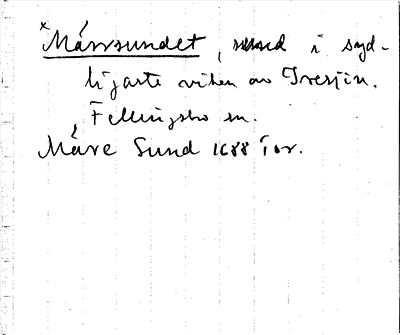 x Mårrsundet, sund i syd-
ligaste viken av Tresjön.
Fellingsbro sn.
Måre Sund 1688 Tor.